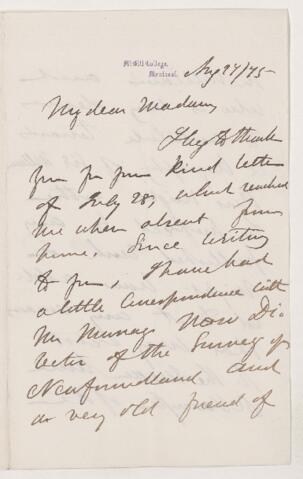 McGill College,
Montreal.
Aug 27/75
My dear Madam,
I beg to thank
you for your kind letter
of July 28, which reached
me when absent from
home. Since writing
to you, I have had
a little correspondence with
Mr Murray now Di-
rector of the Survey of
Newfoundland and
a very old friend of